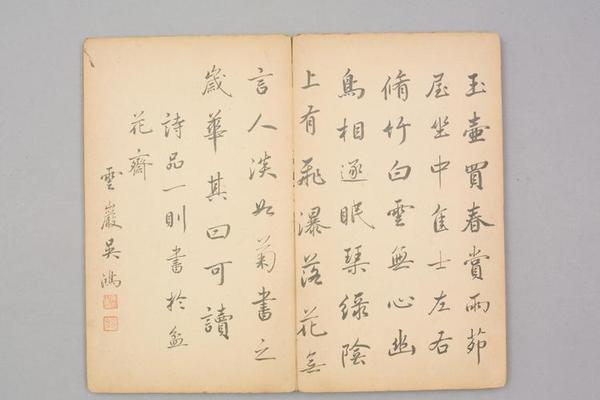 玉壺買春賞雨茆
屋坐中佳士左右
脩竹白雲無心幽
鳥相逐眠琴綠陰
上有飛瀑落花無
言人淡如菊書之
歲華其曰可讀
詩品一則書於盆
花齋
雲巖吳鴻